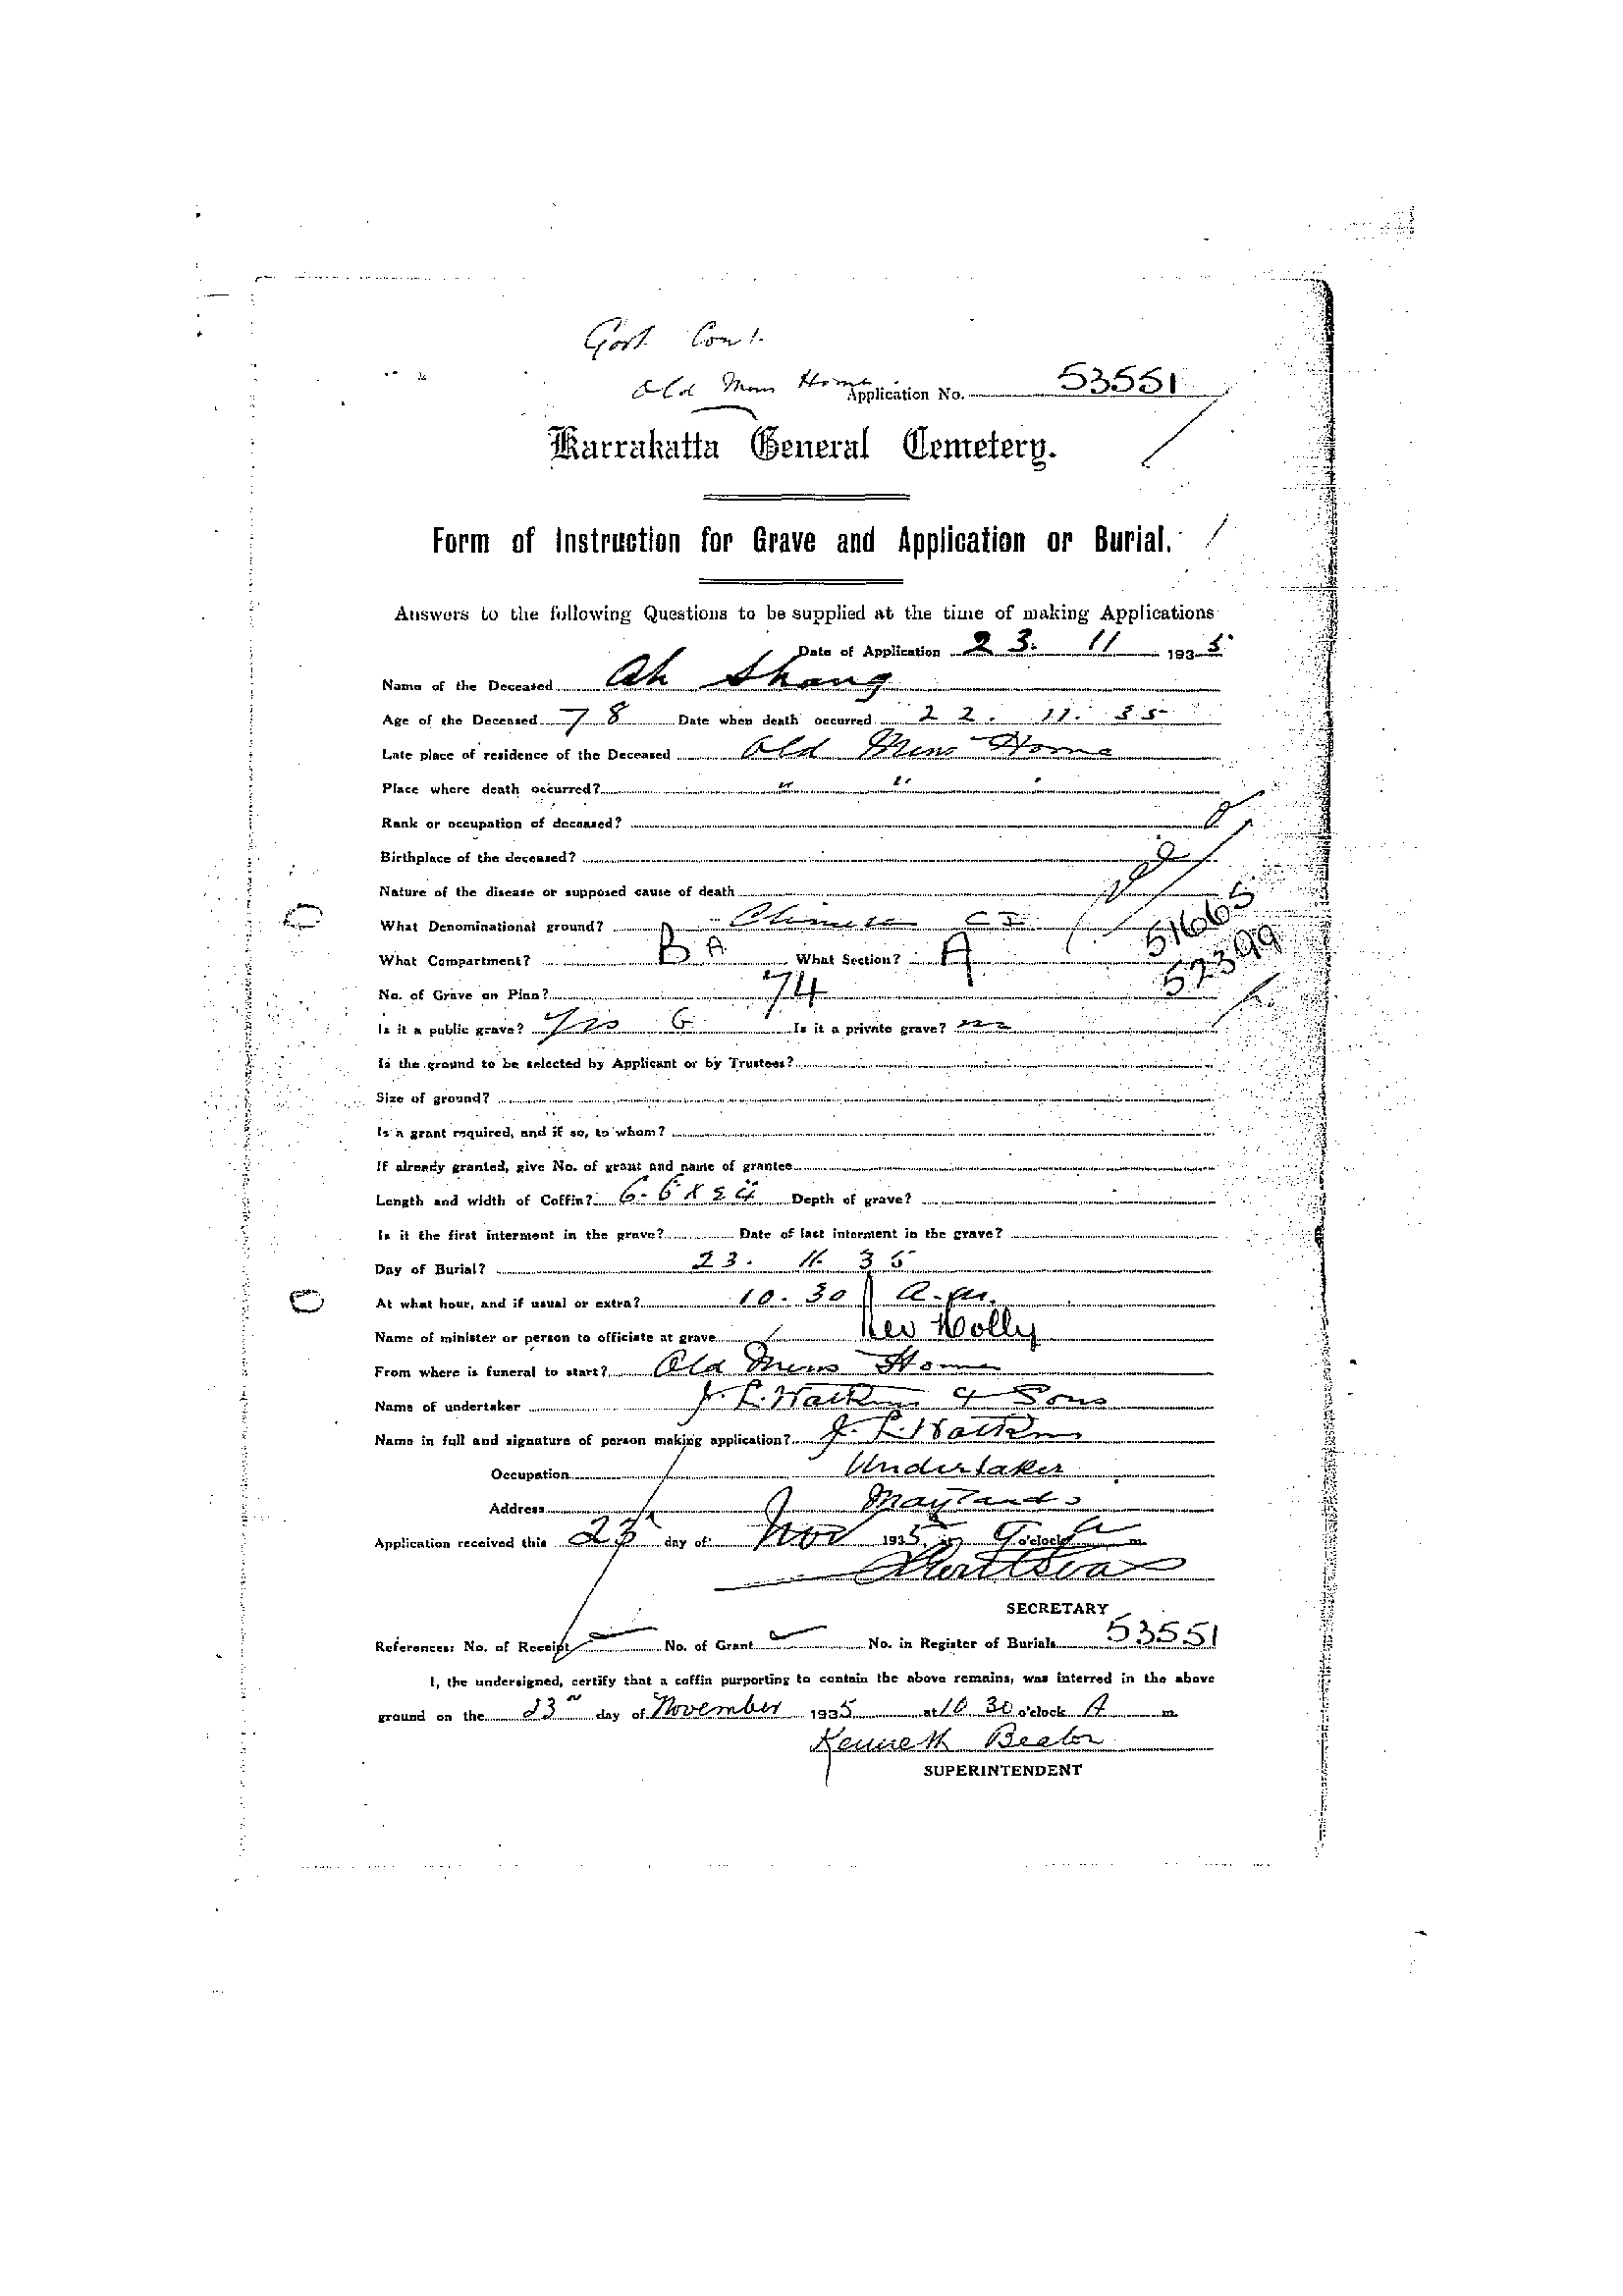 Govt. Cont.
Old Mens Home
Application No. 53551
Karrakatta General Cemetery.
Form of Instruction for Grave and Application or Burial.
Answers to the following Questions to be supplied at the time of making Applications
Date of Application 23. 11 1935
Name of the Deceased Ah Shang
Age of the Deceased 78 Date when death occurred 22. 11. 35
Late place of residence of the Deceased Old Mens Home
Place where death occurred? " "
Rank or occupation of deceased?
Birthplace of the deceased?
Nature of the disease or supposed cause of death
What Denominational ground? Chinese
51665
What Compartment? B A What Section? A
52399
No. of Grave on Plan? 74
Is it a public grave? Yes G Is it a private grave? no
Is the ground to be selected by Applicant or by Trustees?
Size of ground?
Is a grant required, and if so, to whom?
If already granted, give No. of grant and name of grantee
Length and width of Coffin? 6.6 x Depth of grave?
Is it the first interment in the grave? Date of last interment in the grave?
Day of Burial? 23. 11. 35
At what hour, and if usual or extra? 10.30 a.m.
Name of minister or person to officiate at grave Rev Holly
From where is funeral to start? Old Mens Home
Name of undertaker J. L. Watkins & Sons
Name in full and signature of person making application? J. L. Watkins
Occupation Undertaker
Address Maylands
Application received this 23 day of Nov 1935 at 9 o'clock a m.
SECRETARY
References: No. of Receipt No. of Grant No. in Register of Burials 53551
I, the undersigned, certify that a coffin purporting to contain the above remains, was interred in the above
ground on the 23rd day of November 1935 at 10 30 o'clock A m.
Kenneth Beaton
SUPERINTENDENT